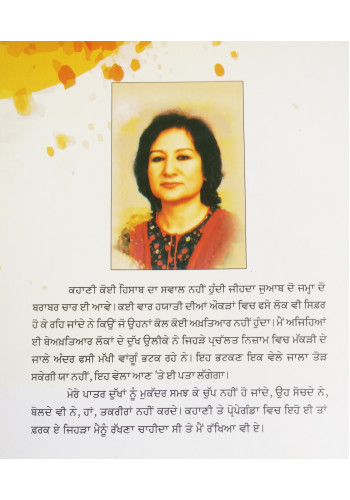 ਕਹਾਣੀ ਕੋਈ ਹਿਸਾਬ ਦਾ ਸਵਾਲ ਨਹੀਂ ਹੁੰਦੀ ਜੀਹਦਾ ਜੁਆਬ ਦੋ ਜਮ੍ਹਾ ਦੋ
ਬਰਾਬਰ ਚਾਰ ਈ ਆਵੇ। ਕਈ ਵਾਰ ਹਯਾਤੀ ਦੀਆਂ ਔਕੜਾਂ ਵਿਚ ਫਸੇ ਲੋਕ ਵੀ ਸਿਫ਼ਰ
ਹੋ ਕੇ ਰਹਿ ਜਾਂਦੇ ਨੇ ਕਿਉਂ ਜੋ ਉਹਨਾਂ ਕੋਲ ਕੋਈ ਅਖ਼ਤਿਆਰ ਨਹੀਂ ਹੁੰਦਾ। ਮੈਂ ਅਜਿਹਿਆਂ
ਈ ਬੇਅਖ਼ਤਿਆਰ ਲੋਕਾਂ ਦੇ ਦੁੱਖ ਉਲੀਕੇ ਨੇ ਜਿਹੜੇ ਪ੍ਰਚੱਲਤ ਨਿਜ਼ਾਮ ਵਿਚ ਮੱਕੜੀ ਦੇ
ਜਾਲੇ ਅੰਦਰ ਫਸੀ ਮੱਖੀ ਵਾਂਗੂੰ ਭਟਕ ਰਹੇ ਨੇ। ਇਹ ਭਟਕਣ ਇਕ ਵੇਲੇ ਜਾਲਾ ਤੋੜ
ਸਕੇਗੀ ਯਾ ਨਹੀਂ, ਇਹ ਵੇਲਾ ਆਣ 'ਤੇ ਈ ਪਤਾ ਲੱਗੇਗਾ।
ਮੇਰੇ ਪਾਤਰ ਦੁੱਖਾਂ ਨੂੰ ਮੁਕੱਦਰ ਸਮਝ ਕੇ ਚੁੱਪ ਨਹੀਂ ਹੋ ਜਾਂਦੇ, ਉਹ ਸੋਚਦੇ ਨੇ,
ਬੋਲਦੇ ਵੀ ਨੇ, ਹਾਂ, ਤਕਰੀਰਾਂ ਨਹੀਂ ਕਰਦੇ। ਕਹਾਣੀ ਤੇ ਪ੍ਰੋਪੇਗੰਡਾ ਵਿਚ ਇਹੋ ਈ ਤਾਂ
ਫ਼ਰਕ ਏ ਜਿਹੜਾ ਮੈਨੂੰ ਰੱਖਣਾ ਚਾਹੀਦਾ ਸੀ ਤੇ ਮੈਂ ਰੱਖਿਆ ਵੀ ਏ।